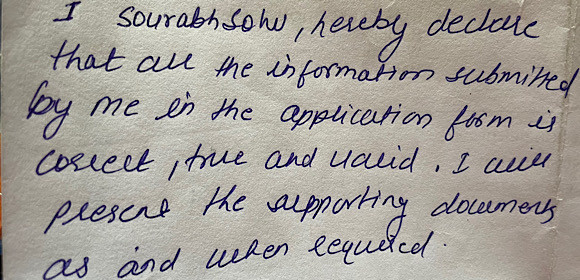 I Sourabh Sahu, hereby declare
that all the information submitted
by me in the application form is
correct, true and valid. I will
present the supporting documents
as and when required.